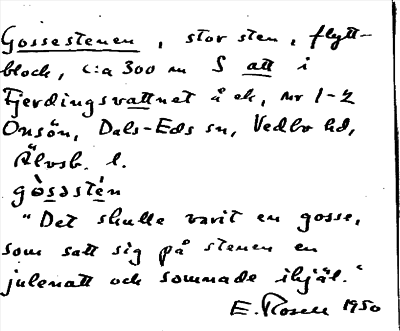 Gossestenen, stor sten, flytt-
block, c:a 300 m S att i
Fjerdingsvattnet å ek, nr 1-2
Onsön, Dals-Eds sn, Vedbo hd,
Älvsb. l.
gòsəstén
"Det skulle varit en gosse,
som satt sig på stenen en
julenatt och somnade ihjäl."
E. Rosell 1950